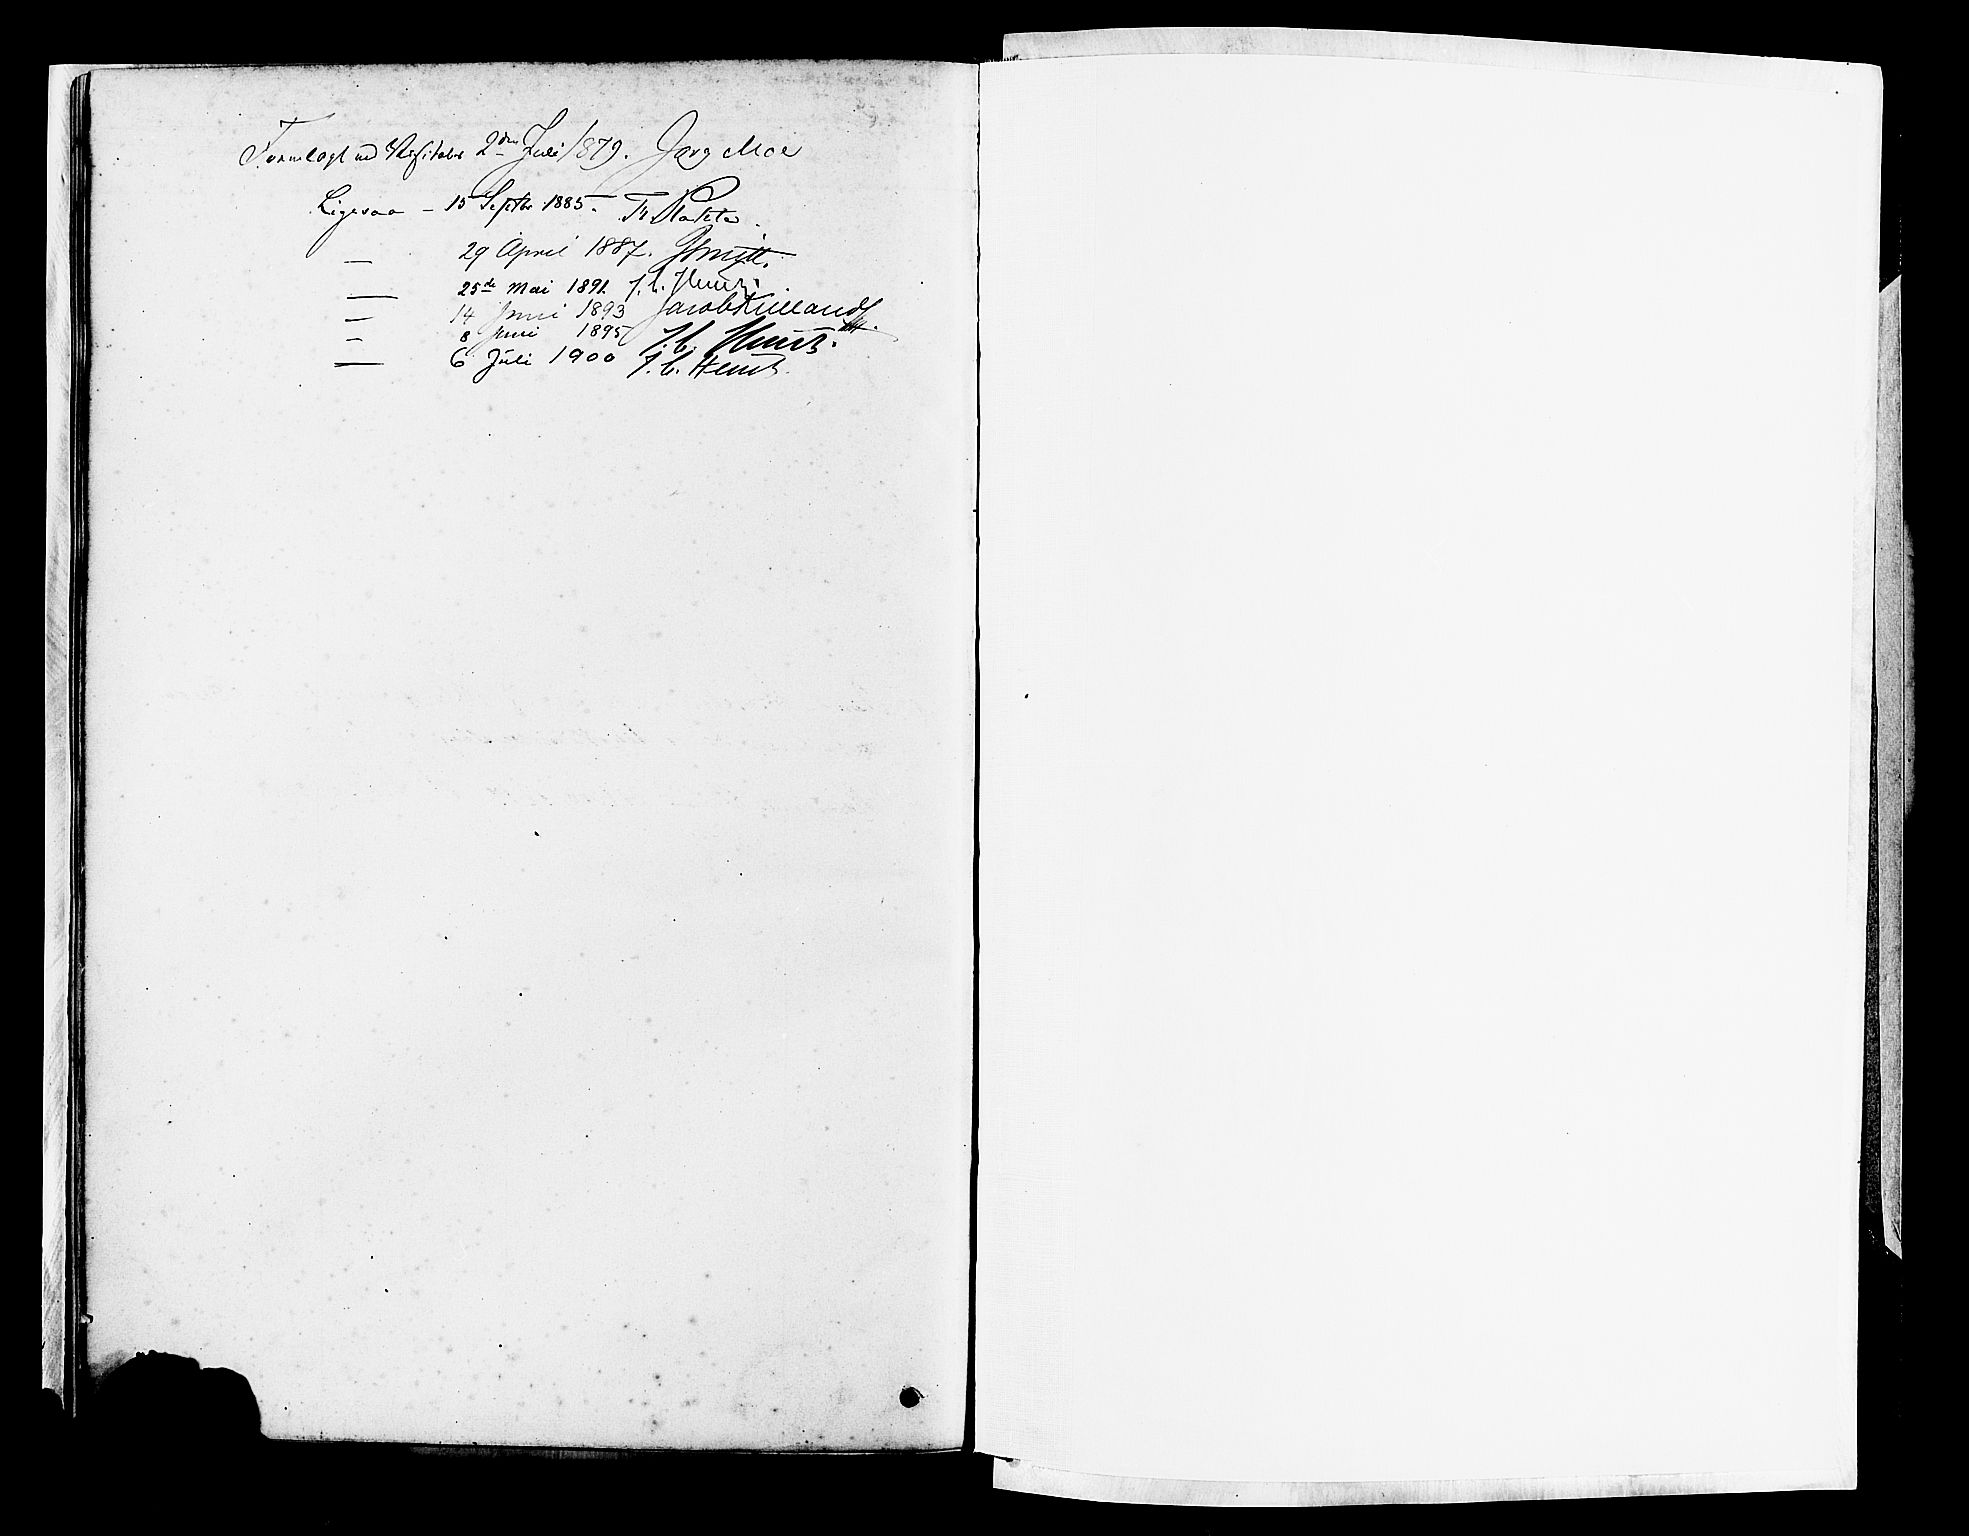 Fremlagt ved Visitats 2den Juli 1879. Jørg Moe
Ligesaa - 15 Septbr. 1885.
— 29 April 1887. Smitt.
— 25de Mai 1891. J. C. Heuch.
— 14 Juni 1893 Jacob Kielland
— 8 Juni 1895 J. C. Heuch.
— 6 Juli 1900 J. C. Heuch.